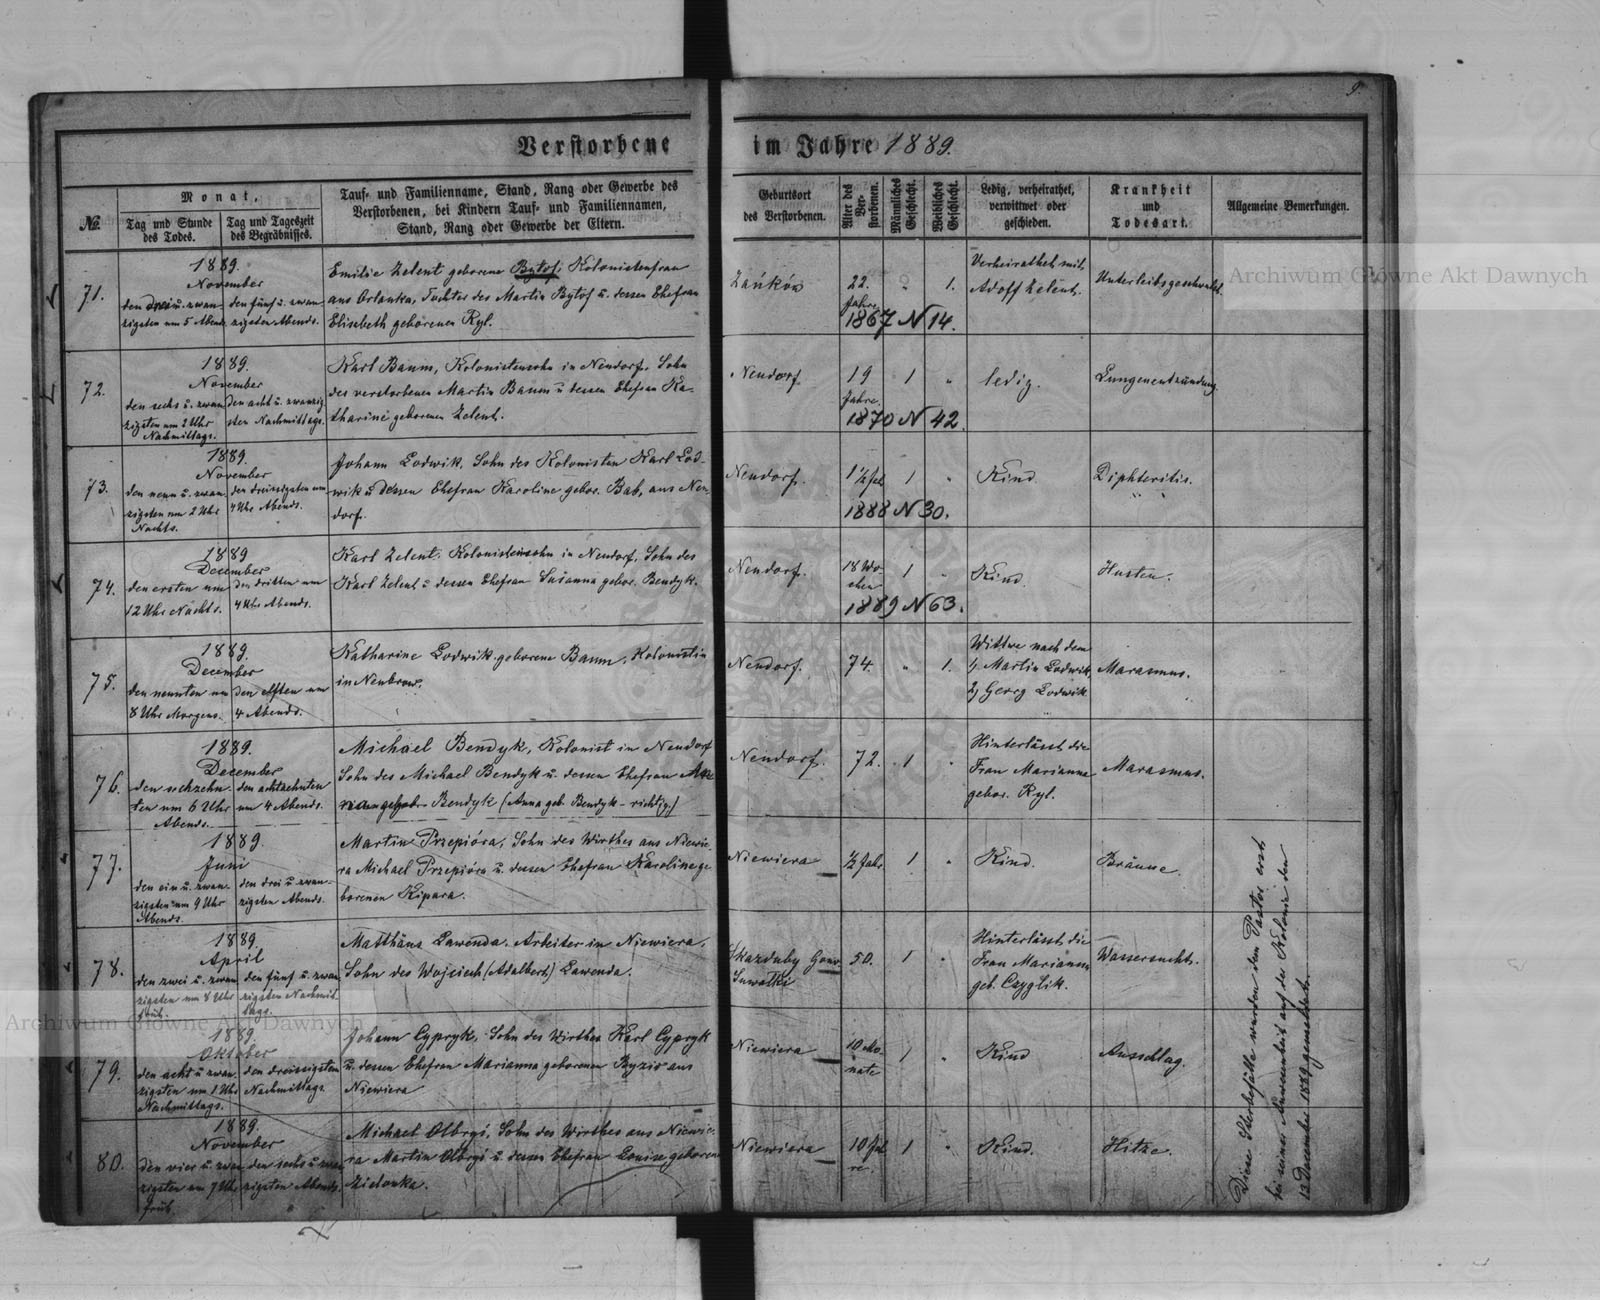 9.
Verstorbene im Jahre 1889.
№
Monat,
Tag und Stunde des Todes.
Tag und Tageszeit des Begräbnisses.
Tauf- und Familienname, Stand, Rang oder Gewerbe des
Verstorbenen, bei Kindern Tauf- und Familiennamen,
Stand, Rang oder Gewerbe der Eltern.
Geburtsort
des Verstorbenen.
Alter des Ver-storbenen.
Männliches Geschlecht.
Weibliches Geschlecht.
Ledig, verheirathet,
verwittwet oder
geschieden.
Krankheit
und
Todesart.
Allgemeine Bemerkungen.
71.
1889.
November
den drei u. zwan-
zigsten um 5 Abend.
den fünf u. zwan
zigsten Abends.
Emilie Zelent geborene Bytof, Kolonistenfrau
aus Orlanka, Tochter des Martin Bytof u. dessen Ehefrau
Elisabeth geborenen Ryl.
Zańków
22.
Jahre
1867 N 14.
1.
Verheirathet mit
Adolf Zelent.
Unterleibsgeschwulst.
72.
1889.
November
den sechs u. zwan
zigsten um 2 Uhr
Nachmittags.
den acht u. zwanzig
sten Nachmittags.
Karl Baum, Kolonistensohn in Neudorf, Sohn
des verstorbenen Martin Baum u dessen Ehefrau Ka-
tharine geborenen Zelent.
Neudorf
19
Jahre.
1870 N 42.
1 "
ledig.
Lungenentzündung
73.
1889.
November
den neun u. zwan
zigsten um 2 Uhr
Nachts.
den dreissigsten um
4 Uhr Abends.
Johann Lodwik, Sohn des Kolonisten Karl Lod-
wik u dessen Ehefrau Karoline gebor. Bab, aus Neu-
dorf.
Neudorf.
1 "
1888 N 30.
Kind
Diphteritis.
74.
1889
December
den ersten um
12 Uhr Nachts.
den dritten um
4 Uhr Abends.
Karl Zelent. Kolonistensohn in Neudorf, Sohn des
Karl Zelent u dessen Ehefrau Susanna gebor. Bendyk.
Neudorf.
18 Wo-
chen
1889 N 63.
1 "
Kind
Husten.
75.
1889.
December
den neunten um
8 Uhr Morgens.
den elften um
4 Abends.
Katharine Lodwik, geborene Baum, Kolonistin
in Neubrow.
Neudorf.
74. " 1.
Wittwe nach dem
1, Martin Lodwik
2, Georg Lodwik
Marasmus.
76.
1889.
December
den sechzehn-
ten um 6 Uhr
Abends.
den achtzehnten
um 4 Abends.
Michael Bendyk, Kolonist in Neudorf
Sohn des Michael Bendyk u. dessen Ehefrau Ma-
rianna gebor. Bendyk (Anna geb. Bendyk - richtig.)
Neudorf.
72. 1 "
Hinterlässt die
Frau Marianna
gebor. Ryl.
Marasmus.
77.
1889.
Juni
den ein u. zwan-
zigsten um 9 Uhr
Abends.
den drei u zwan-
zigsten Abends.
Martin Przepióra, Sohn des Wirthes aus Niewie-
ra Michael Przepióra u. dessen Ehefrau Karoline ge
borenen Kipara.
Niewiera
½ Jahr 1 "
Kind.
Bräune.
78.
1889.
April
den zwei u. zwan
zigsten um 8 Uhr
früh.
den fünf u. zwan
zigsten Nachmit
tags.
Matthäus Lawenda. Arbeiter in Niewiera.
Sohn des Wojciech (Adalbert) Lawenda.
Skazduby Gouv.
Suwalki
50. 1 "
Hinterlässt die
Frau Marianna
geb. Czyglik.
Wassersucht.
79.
1889.
Oktober
den acht u. zwan
zigsten um 1 Uhr
Nachmittags.
den dreissigsten
Nachmittags
Johann Cypryk, Sohn des Wirthes Karl Cypryk
u. dessen Ehefrau Marianna geborenen Byzio aus
Niewiera
Niewiera
10 Mo-
nate
1 "
Kind
Ausschlag.
80.
1889.
November
den vier u. zwan
zigsten um 7 Uhr
früh.
den sechs u zwan
zigsten Abends.
Michael Olbryś, Sohn des Wirthes aus Niewie-
ra Martin Olbryś u. dessen Ehefrau Louise geboren
Zielonka.
Niewiera
10 Jah
re.
1 "
Kind.
Hitze.
Diese Sterbefälle wurden dem Pastor erst
bei seiner Anwesenheit auf der Kolonie den
12 December 1889 gemeldet.
Archiwum Główne Akt Dawnych
Archiwum Główne Akt Dawnych